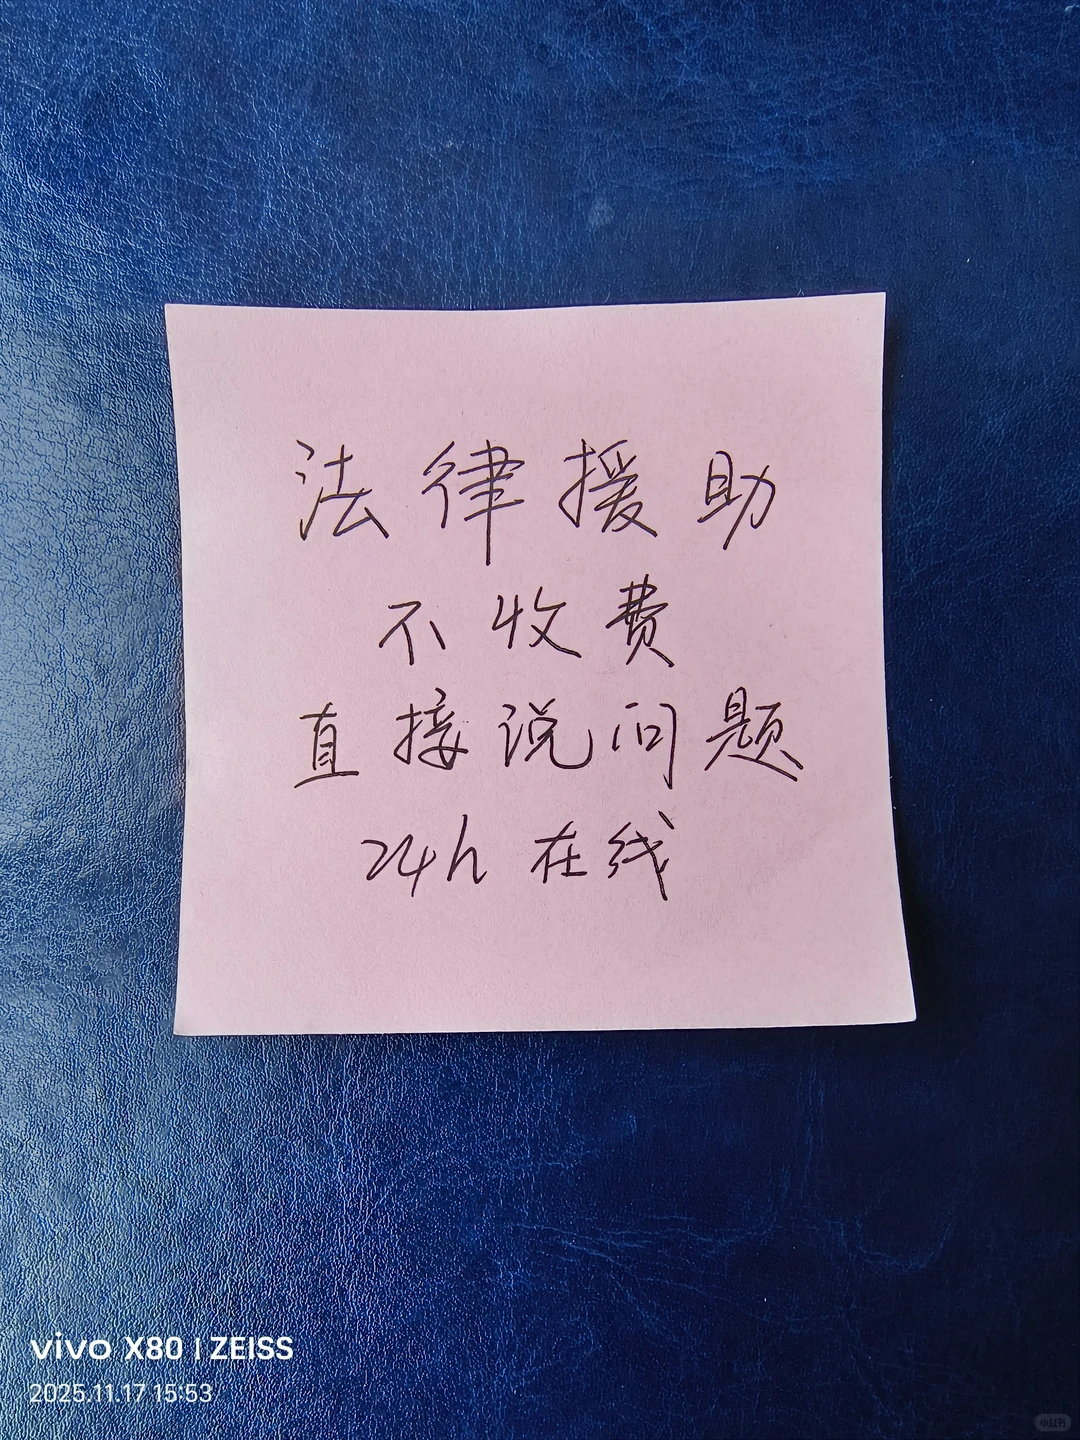 法律援助
不收费
直接说问题
24h 在线
vivo X80 | ZEISS
2025.11.17 15:53
小红书